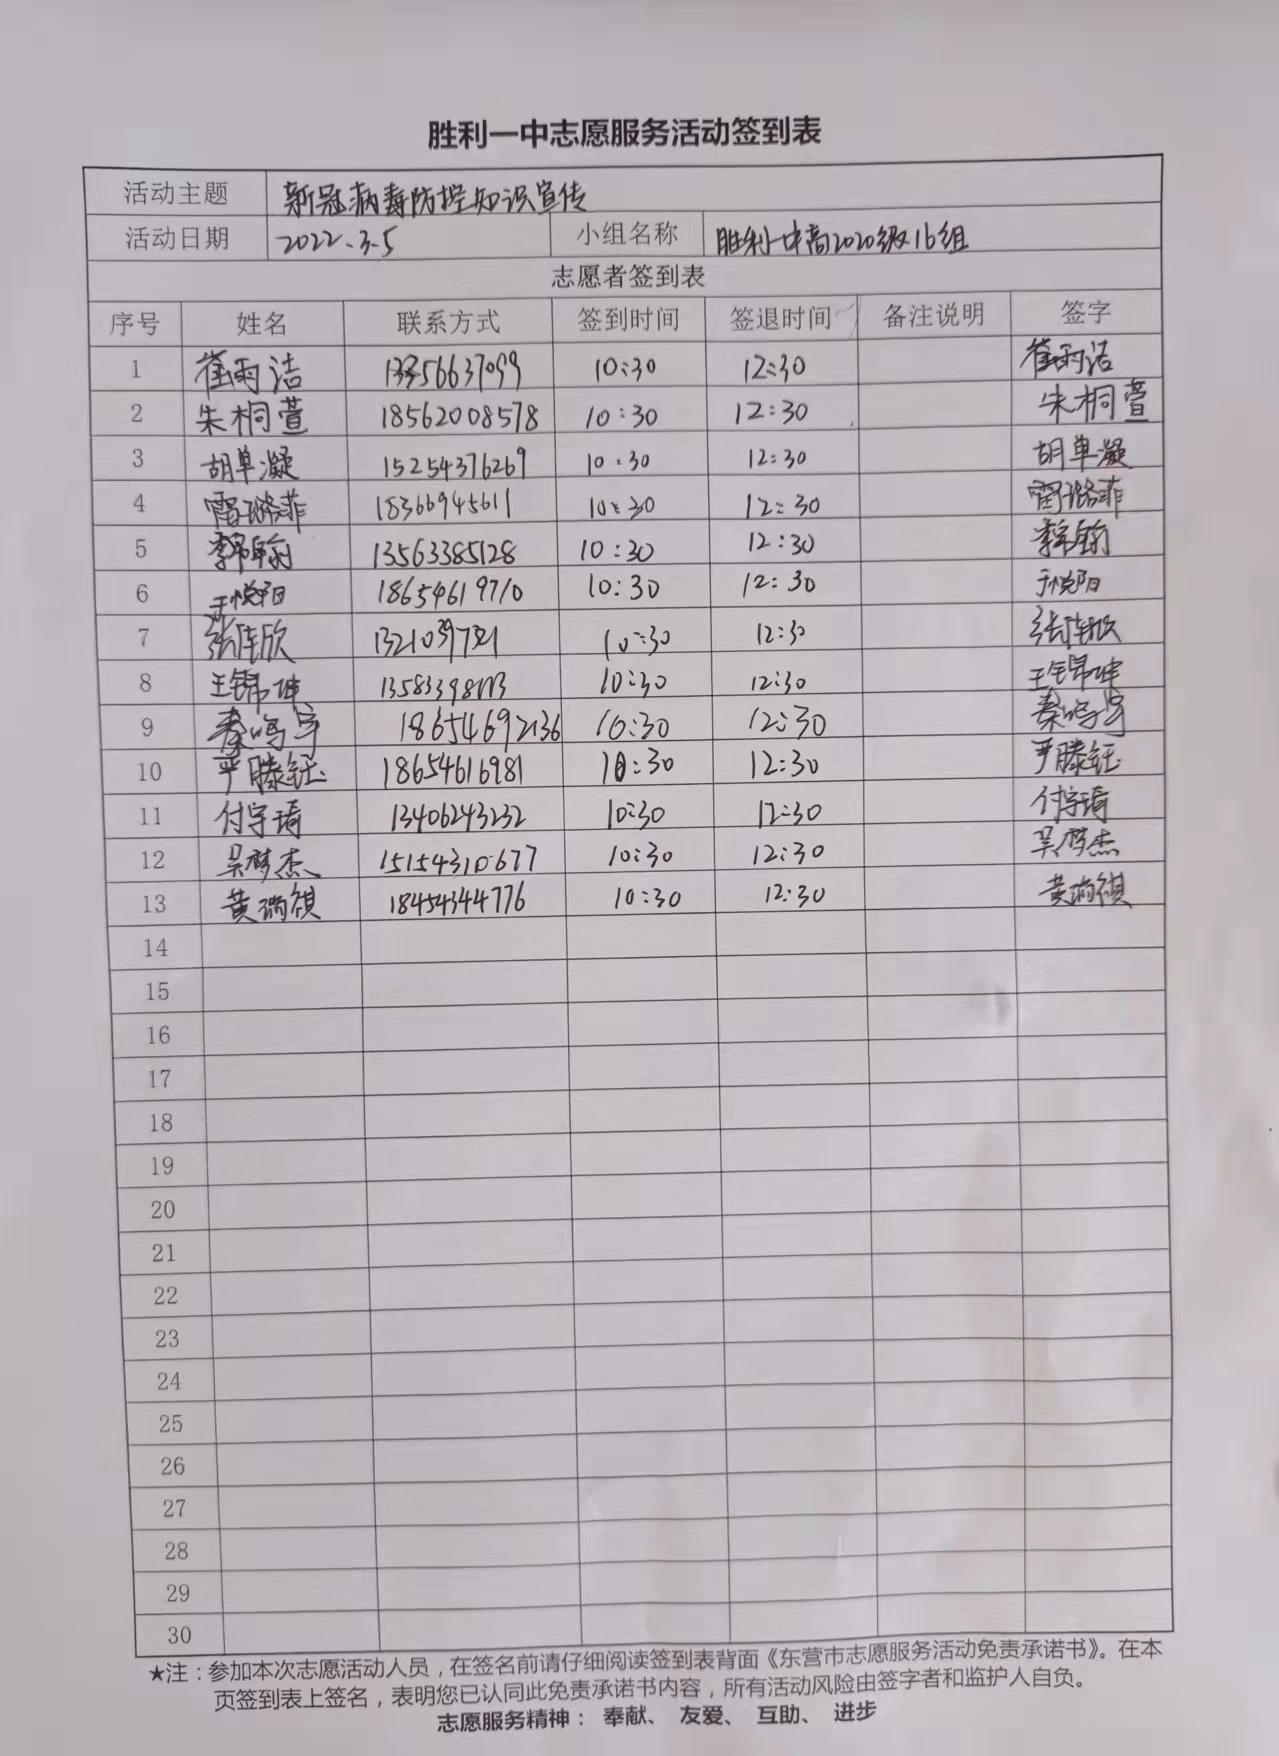 胜利一中志愿服务活动签到表
活动主题 新冠病毒防控知识宣传
活动日期 2022.3.5 小组名称 胜利一中高2020级16组
志愿者签到表
序号 姓名 联系方式 签到时间 签退时间 备注说明 签字
1 崔雨洁 10:30 12:30 崔雨洁
2 朱桐萱 18562008578 10:30 12:30 朱桐萱
3 胡单凝 15254376269 10:30 12:30 胡单凝
4 雷璐菲 18366945611 10:30 12:30 雷璐菲
5 13563385128 10:30 12:30
6 于悦阳 18654619710 10:30 12:30 于悦阳
7 张佳欣 10:30 12:30 张佳欣
8 王锦坤 10:30 12:30 王锦坤
9 秦鸣宇 18654692136 10:30 12:30 秦鸣宇
10 严滕钰 18654616981 10:30 12:30 严滕钰
11 付宇琦 13406243232 10:30 12:30 付宇琦
12 吴梦杰 15154310677 10:30 12:30 吴梦杰
13 黄瑞祺 18454344776 10:30 12:30 黄瑞祺
14
15
16
17
18
19
20
21
22
23
24
25
26
27
28
29
30
★注：参加本次志愿活动人员，在签名前请仔细阅读签到表背面《东营市志愿服务活动免责承诺书》。在本
页签到表上签名，表明您已认同此免责承诺书内容，所有活动风险由签字者和监护人自负。
志愿服务精神： 奉献、 友爱、 互助、 进步